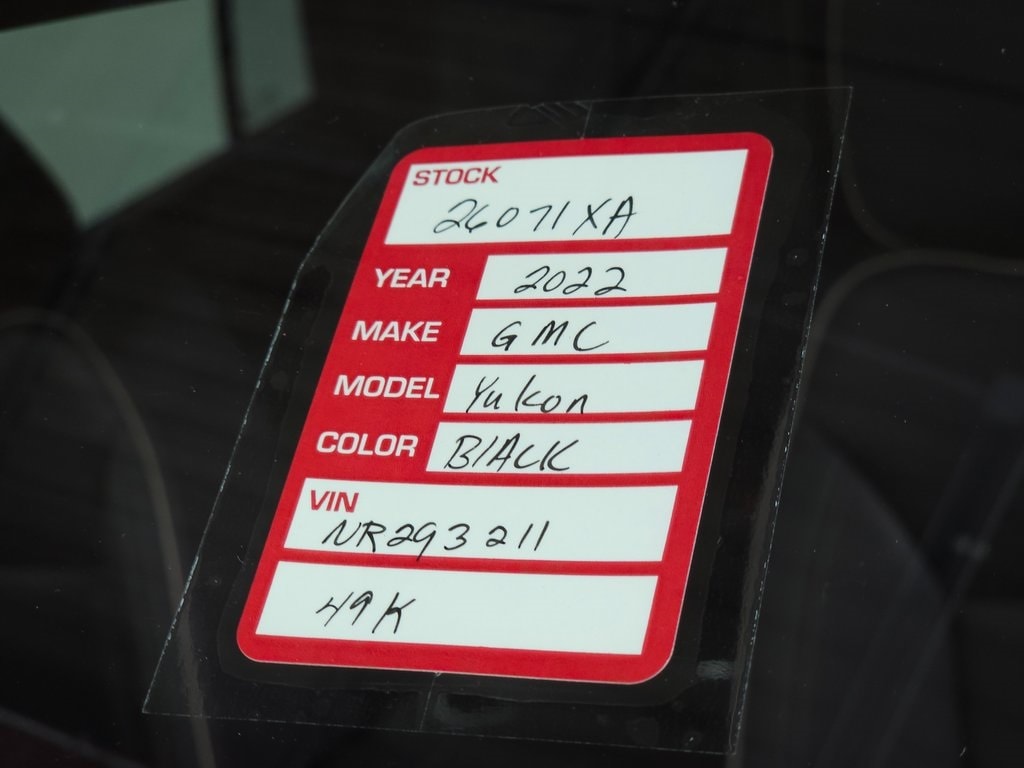 STOCK
26071XA
YEAR 2022
MAKE GMC
MODEL Yukon
COLOR BLACK
VIN
NR293211
49K